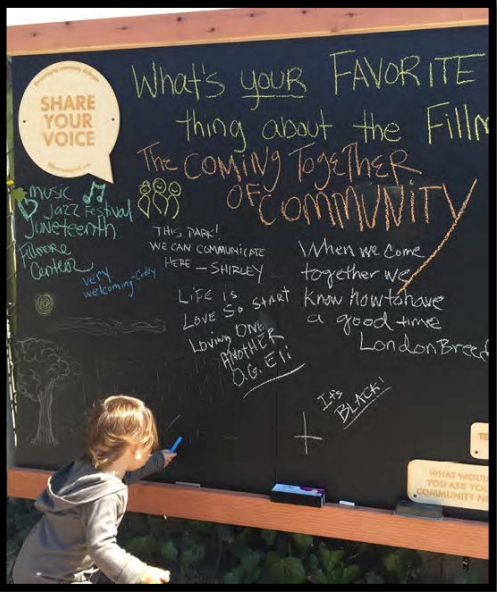 SHARE
YOUR
VOICE
What's your FAVORITE
thing about the Fillm
The COMING TOGETHER
OF COMMUNITY
MUSIC
Jazz Festival
Juneteenth
Fillmore
Center
very
welcoming-
THIS PARK!
WE CAN COMMUNICATE
HERE - SHIRLEY
LIFE IS
LOVE SO START
LOVING ONE
ANOTHER
O.G. Eli
When we come
together we
know how to have
a good time
London Breed
It's
BLACK!
WHAT WOUL
YOU ASK YOU
COMMUNITY